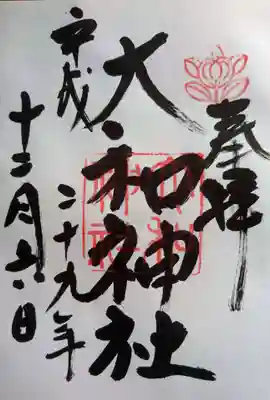 奉拝
大和神社
平成二十九年
十二月六日